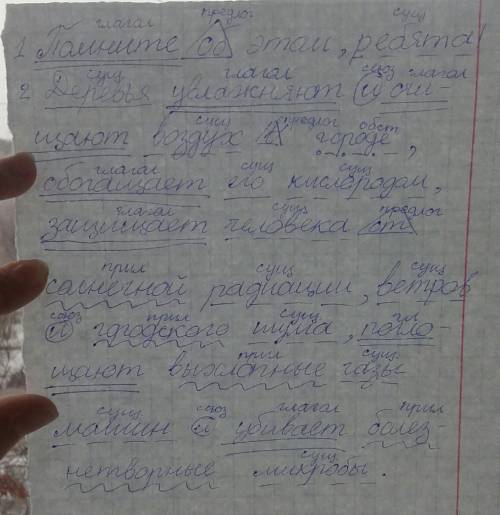 глагол предлог сущ
1 Помните об этом, ребята!
сущ глагол союз глагол
2 Деревья увлажняют и очи-
сущ предлог обст
щают воздух в городе,
глагол сущ сущ
обогащает его кислородом,
глагол сущ предлог
защищает человека от
прил сущ сущ
солнечной радиации, ветров
союз прил сущ гл
и городского шума, погло-
прил сущ
щают выхлопные газы
сущ союз глагол прил
машин и убивает болез-
сущ
нетворные микробы.